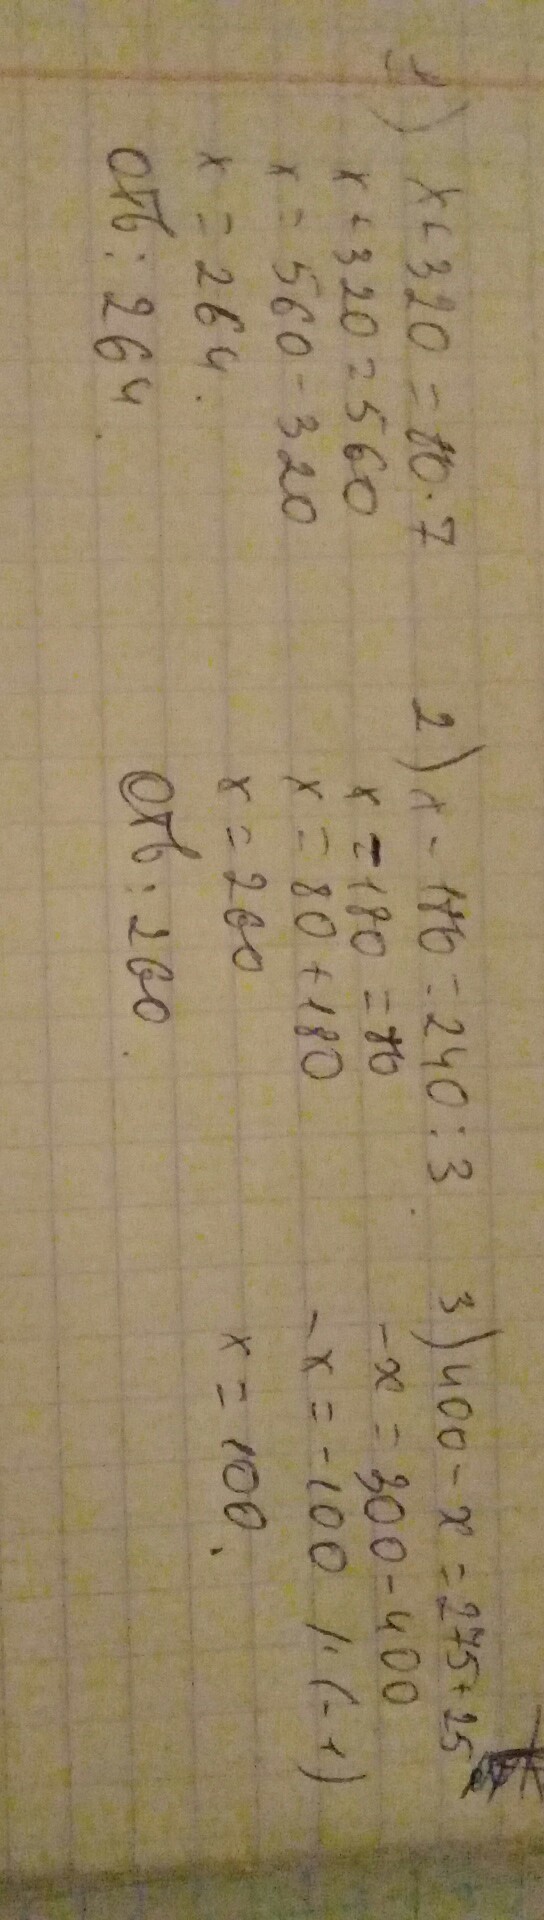 1) x + 320 = 80 · 7
x + 320 = 560
x = 560 - 320
x = 264.
Отв: 264.
2) x - 180 = 240 : 3
x - 180 = 80
x = 80 + 180
x = 260
Отв: 260.
3) 400 - x = 275 + 25
-x = 300 - 400
-x = -100 /· (-1)
x = 100.